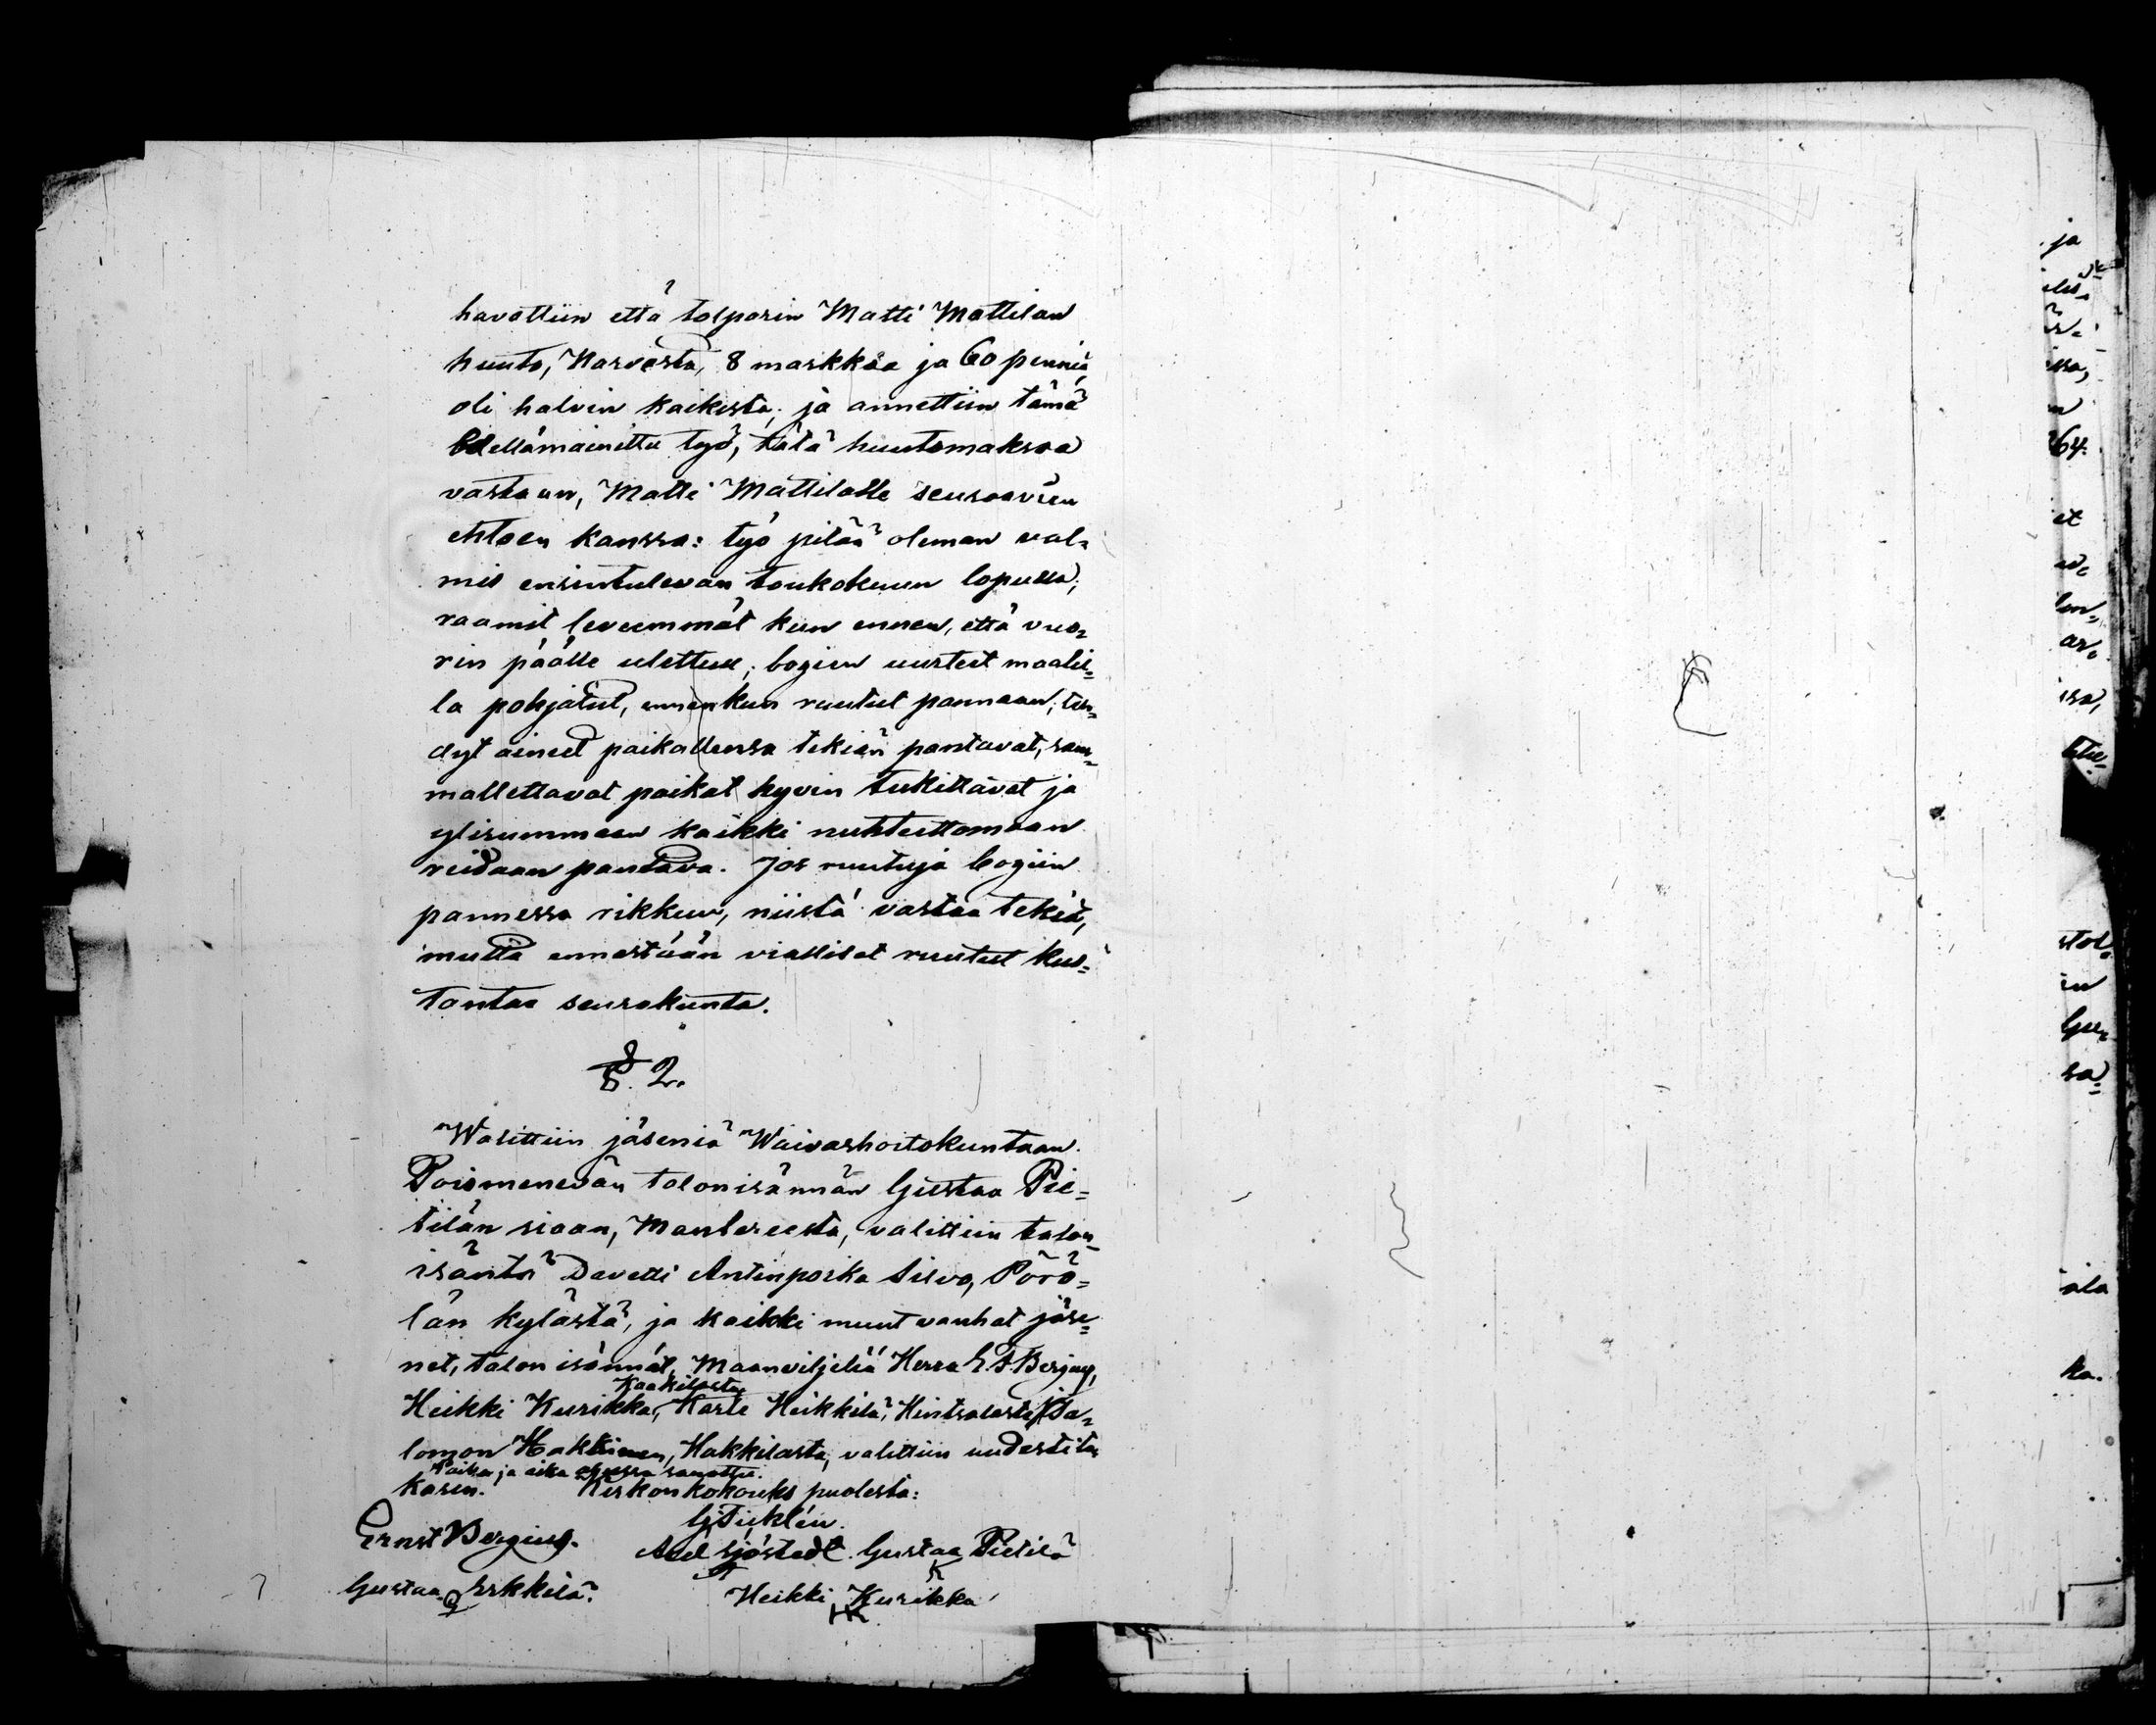 havattiin että torparin Matti Mattilan
huuto, Karvasta, 8 markkaa ja 60 penniä,
oli halvin kaikista; ja annettiin tämä
edellämainittu työ, tätä huutomaksoa
vastaan, Matti Mattilalle seuraavien
ehtoen kanssa: työ pitää oleman val-
mis ensintulevan toukokuun lopussa;
raamit leveemmät kun ennen, että vuo-
rin päälle ulettuu; bogien uurteet maalil-
la pohjatut, ennenkun ruutut pannaan; teh-
dyt aineet paikallensa tekiän pantavat, sam-
mallettavat paikat hyvin tukittavat ja
ylisummaan kaikki nuhteettomaan
reidaan pantava. Jos ruutuja bogiin
pannessa rikkuu, niistä vastaa tekiä,
mutta ennestään vialliset ruutut kus-
tantaa seurakunta.
§ 2.
Walittiin jäseniä Waivashoitokuntaan.
Poismenevän talonisännän Gustaa Pie-
tilän siaan, Mantereesta, valittiin talon-
isäntä Davetti Antinpoika Sirvo, Pörö-
län kylästä, ja kaikki muut vanhat jäse-
net, talon isännät, Maanviljeliä Herra E. A. Bergius,
Kaakilasta
Heikki Kurikka, Kaste Heikkilä, Hintsalasta, Sa-
lomon Hakkinen, Hakkilasta, valittiin uudestita-
Paikka ja aika alussa sanottu.
kasin. Kirkonkokouks puolesta:
G. Ticklén.
Ernst Bergius. Axel Sjöstedt. Gustaa Pietilä
Gustaa Erkkilä. Heikki Kurikka
HK
ja
64.
et
in
sa-
ala
ka.